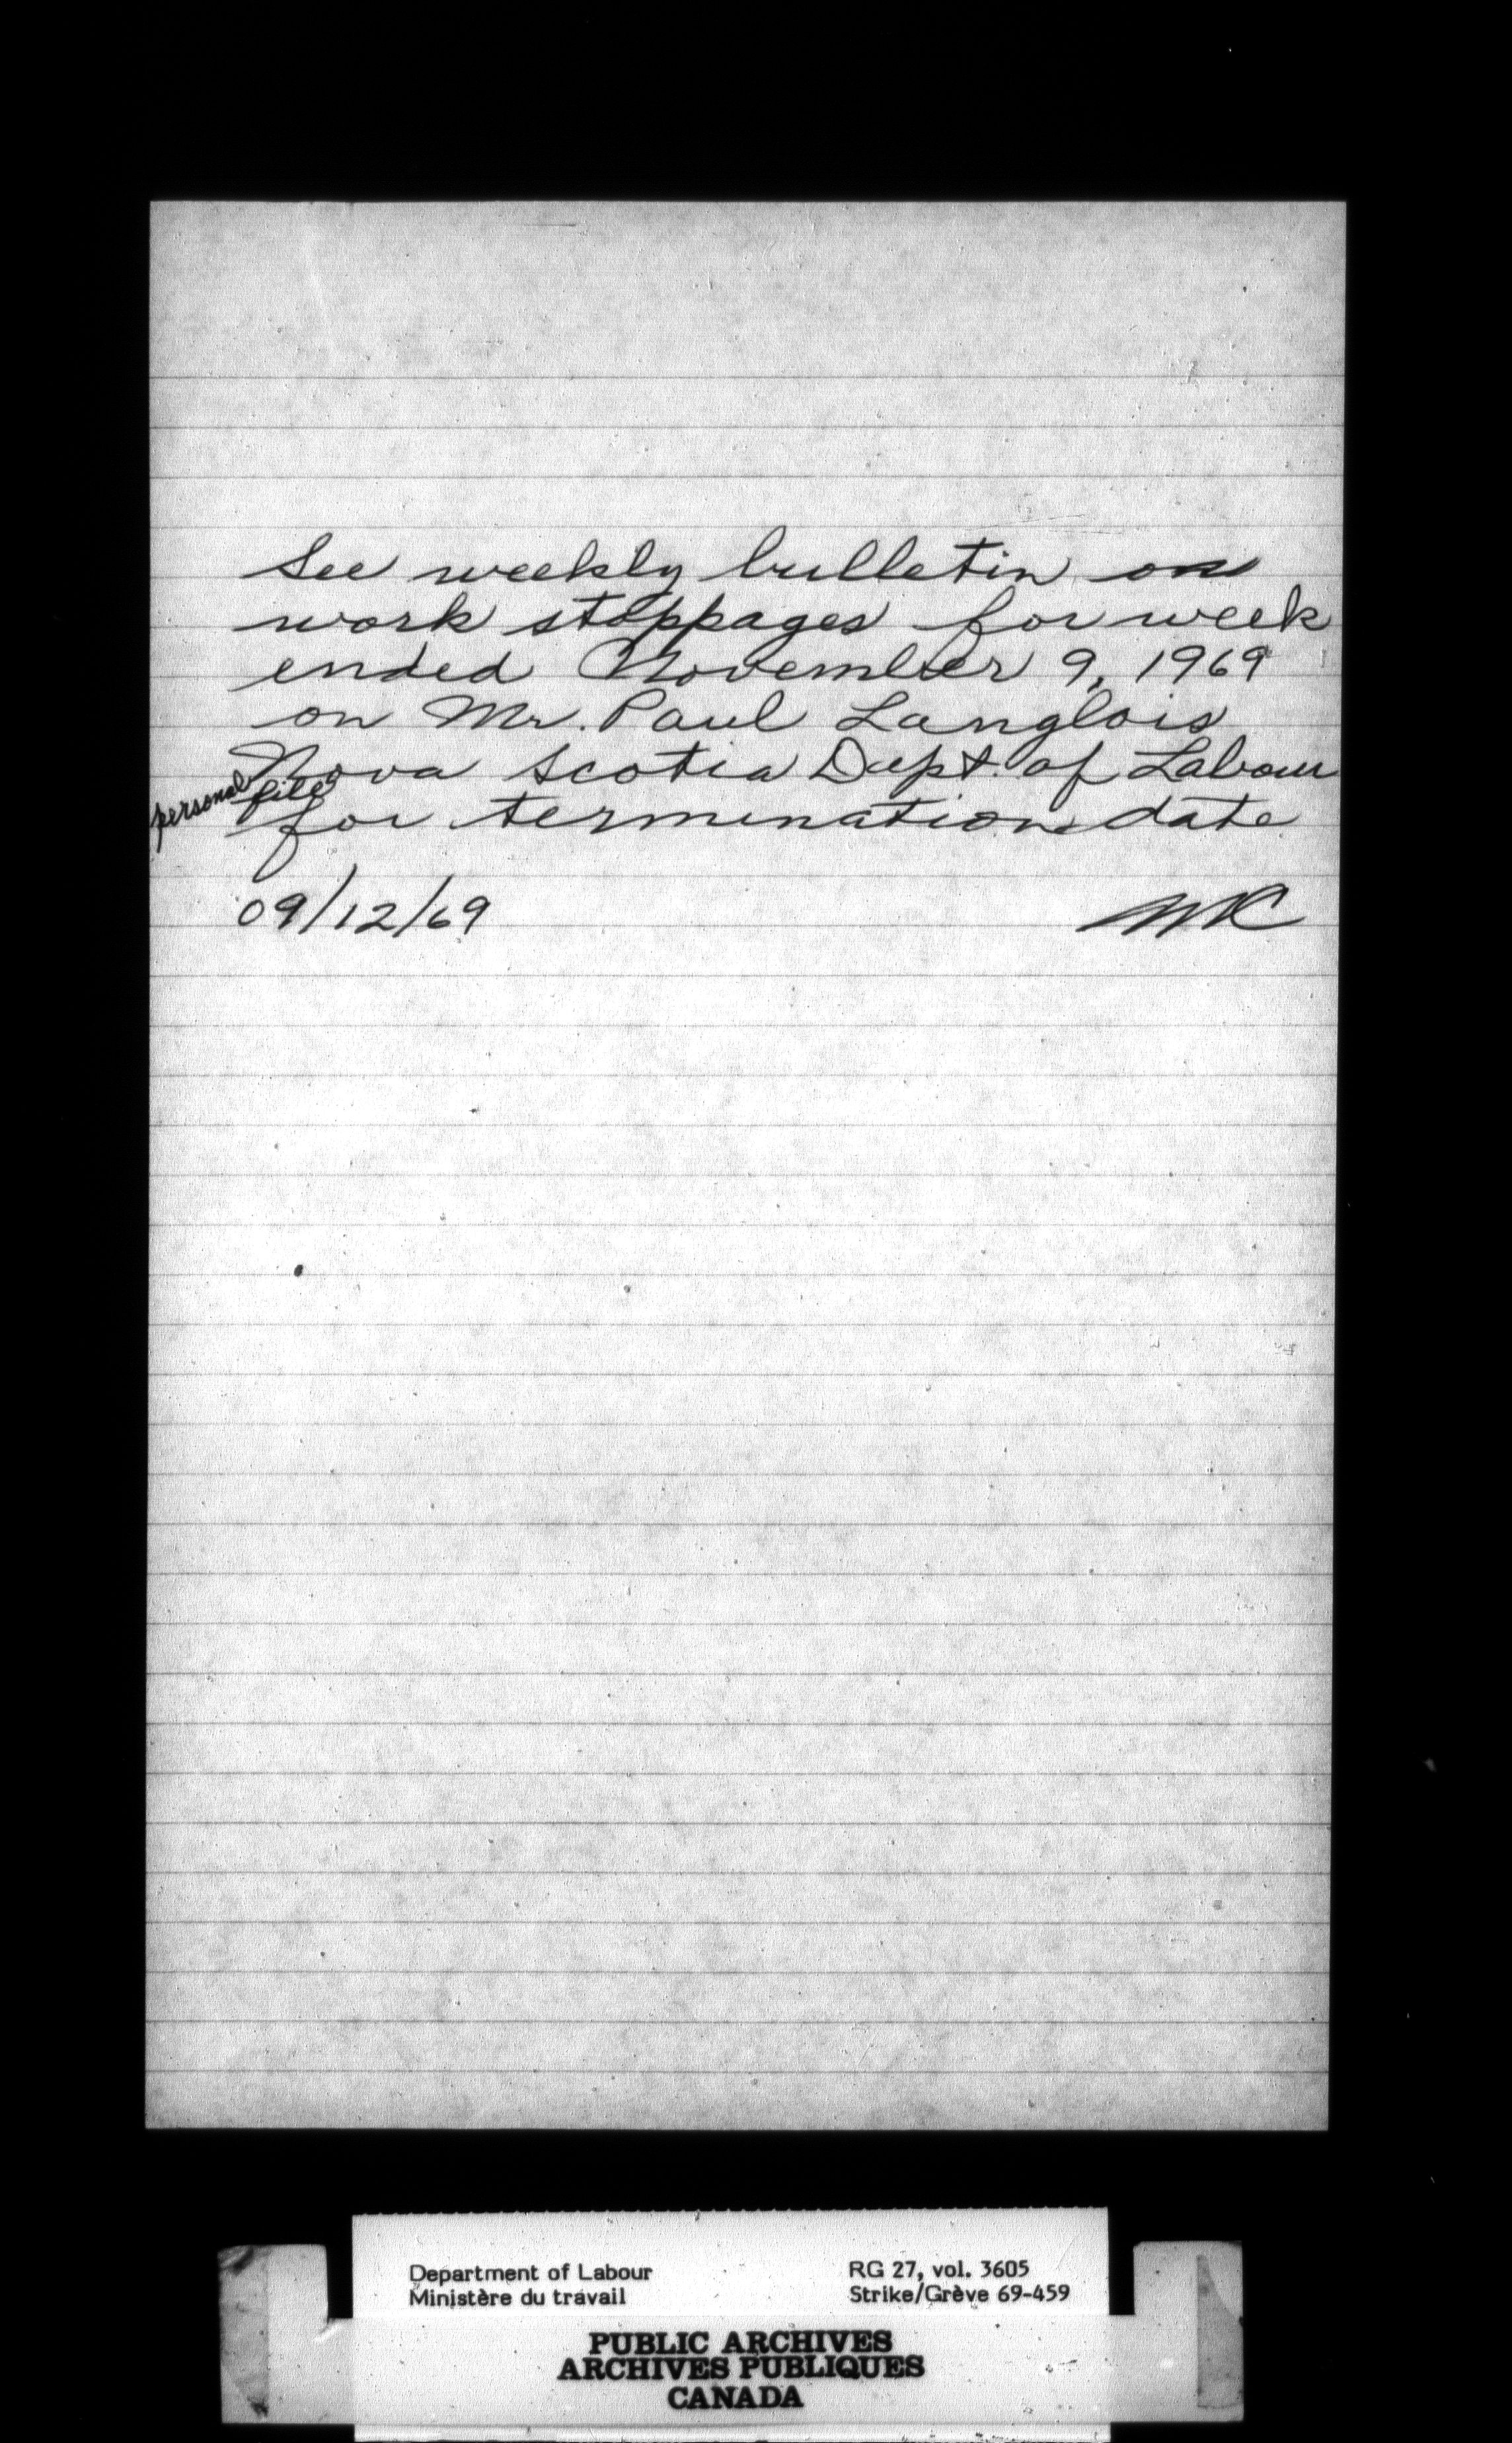 See weekly bulletin on
work stoppages for week
ended November 9, 1969
on Mr. Paul Langlois
Nova Scotia Dept. of Labour
personal file
for termination date
09/12/69
Department of Labour
Ministère du travail
RG 27, vol. 3605
Strike/Grève 69-459
PUBLIC ARCHIVES
ARCHIVES PUBLIQUES
CANADA